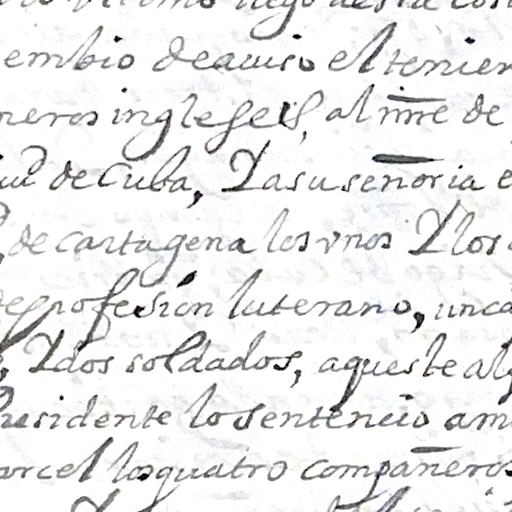 embio de auiso el tenien
neros ingleses, al mre de
iud de Cuba, Y a su señoria e
de cartagena los vnos Y los
de profesion luterano, un ca
Y dos soldados, aqueste al
Presidente lo sentencio a mu
arcel los quatro compañeros